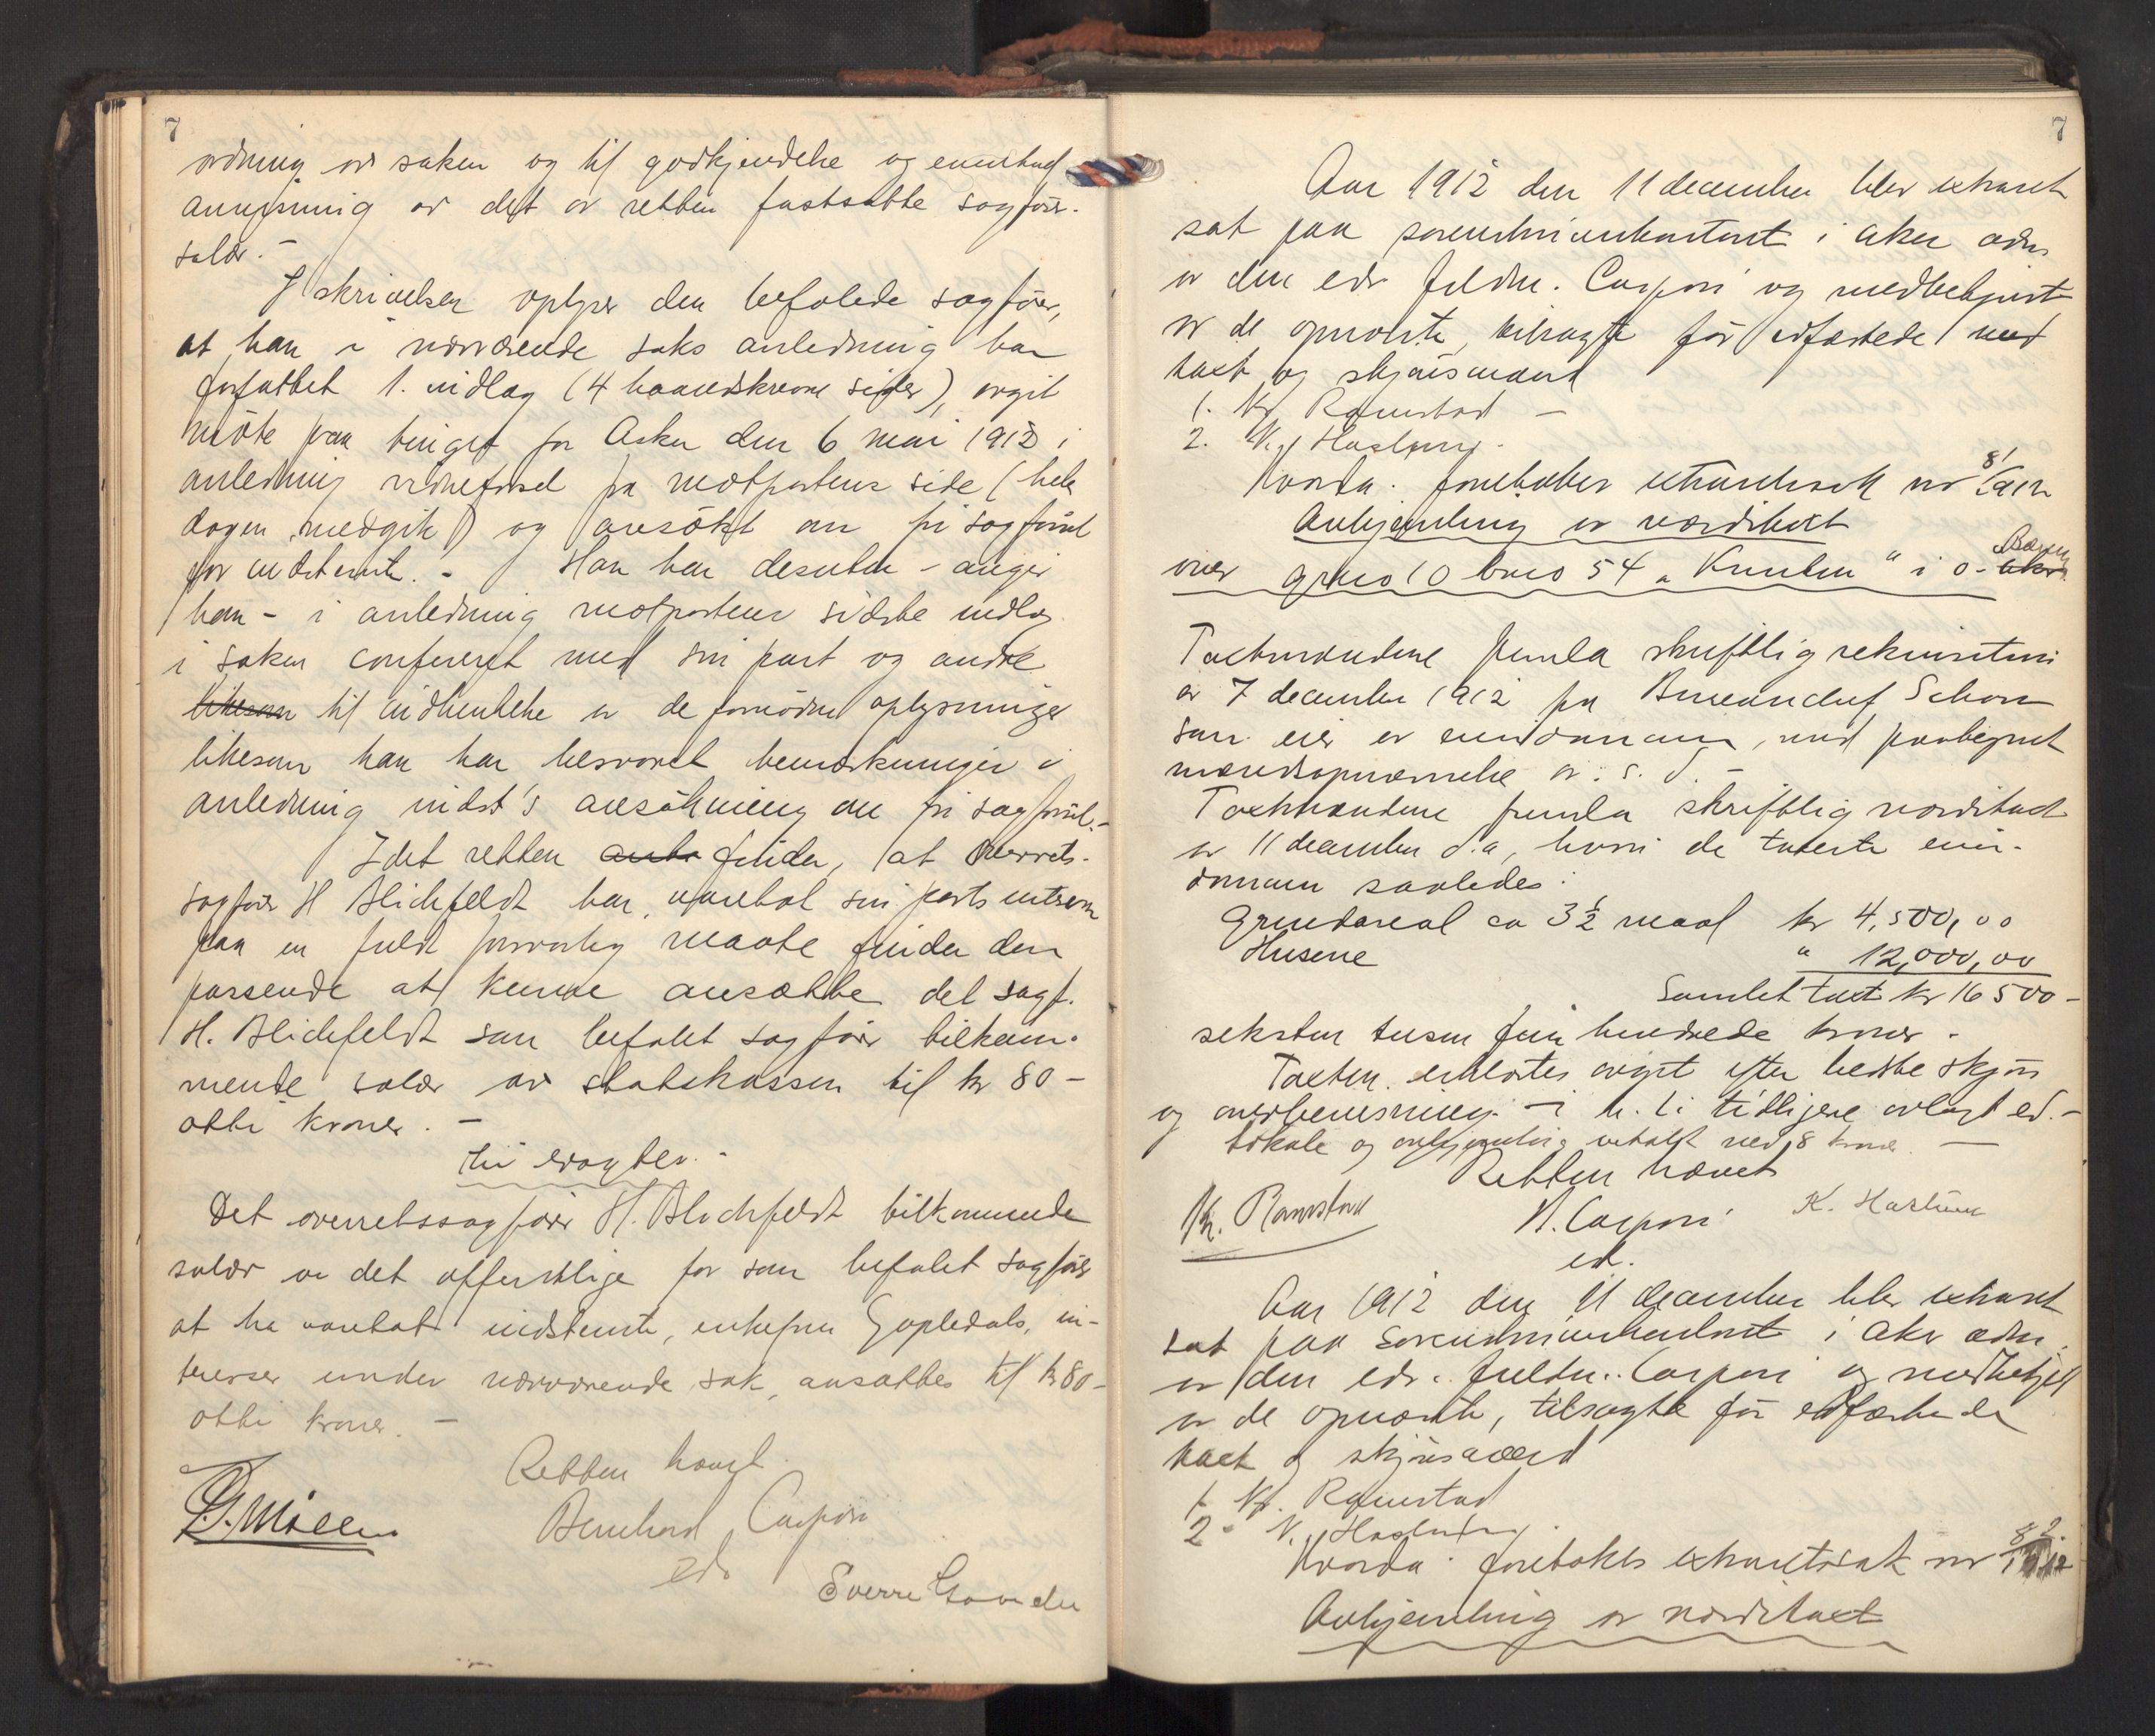 7
ordning av saken og til godkjendelse og eventuel
anvisning av det av retten fastsatte sagfører-
salær. -
I skrivelsen oplyser den befalede sagfører,
at han i nærværende saks anledning har
forfattet 1. indlæg (4 haandskrevne sider), avgit
møte paa tinget for Asker den 6 mai 1912 i
anledning vidneførsel fra motpartens side (hele
dagen medgik) og ansøkt om fri sagførsel
for indstevnte. - Han har desuten - angir
han - i anledning motpartens sidste indlæg
i saken confereret med sin part og andre
likesom til indhentelse av de fornødne oplysninger
likesom han har besvaret bemerkninger i
anledning indst's ansøkning om fri sagførsel. -
Idet retten finder, at overrets-
sagfører H Blichfeldt har varetat sin parts interesser
paa en fuldt forsvarlig maate finder den
passende at kunne ansætte det sagf.
H. Blichfeldt som befalet sagfører tilkom-
mende salær av statskassen til kr 80 -
otti kroner. -
thi eragtes. -
Det overretssagfører H. Blichfeldt tilkommende
salær av det offentlige for som befalet sagfører
at ha varetat indstevnte, enkefru Gopledals, in-
teresser under nærværende sak, ansættes til kr 80 -
otti kroner. -
Retten hævet.
Bernhard Caspari
edv
Sverre
7
Aar 1912 den 11 december blev extraret
sat paa sorenskriverkontoret i Aker adm.
av den edv fuldm. Caspari og medbetjent
av de opnævnte, tilsagte før edfæstede
taxt og skjønsmænd
1. Kr. Ramstad -
2. K. Haslum.
Hvorda. foretokes extraretssak nr 81/1912
Avhjemling av værditaxt
over gr.no 10 br.no 54 „Knulen" i Ø- Bærum
Taxtmændene fremla skriftlig rekvisition
av 7 december 1912 fra Bureauchef Schou
som eier av eiendommen, med paategnet
mændsopnævnelse av s. d. -
Taxtmændene fremla skriftlig værditaxt
av 11 december d.a, hvori de taxerte eien-
dommen saaledes:
Grundareal ca 3½ maal kr 4,500,00
Husene " 12,000,00
Samlet taxt kr 16 500 -
seksten tusen fem hundrede kroner -
Taxten erklærtes avgit efter bedste skjøn
og overbevisning - i h. t. tidligere avlagt ed. -
Lokale og avhjemling betalt med 8 kroner. -
Retten hævet
Kr. Ramstad
H. Caspari
K. Haslum
ed.
Aar 1912 den 11 december blev extraret
sat paa sorenskriverkontoret i Aker adm.
av den edv. fuldm. Caspari og medbetjent
av de opnævnte, tilsagte før edfæstede
taxt og skjønsmænd
1. Kr. Ramstad
2. K. Haslum.
Hvorda. foretokes extraretssak nr 82/1912
Avhjemling av værditaxt